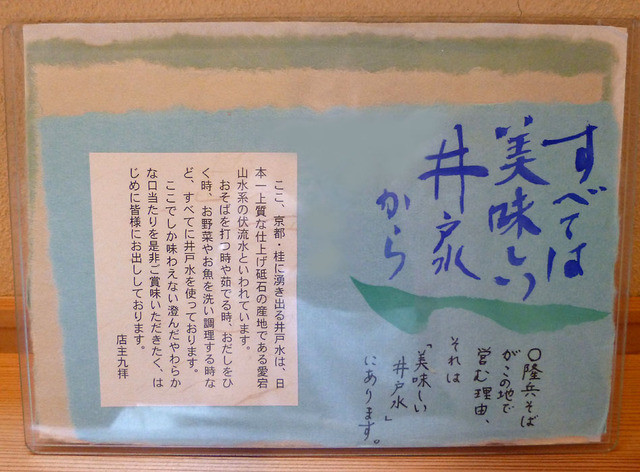 すべては
美味しい
井戸水
から
〇隆兵そば
がこの地で
営む理由、
それは
「美味しい
井戸水」
にあります。
ここ、京都・桂に湧き出る井戸水は、日
本一上質な仕上げ砥石の産地である愛宕
山水系の伏流水といわれています。
おそばを打つ時や茹でる時、おだしをひ
く時、お野菜やお魚を洗い調理する時な
ど、すべてに井戸水を使っております。
ここでしか味わえない澄んだやわらか
な口当たりを是非ご賞味いただきたく、は
じめに皆様にお出ししております。
店主九拝